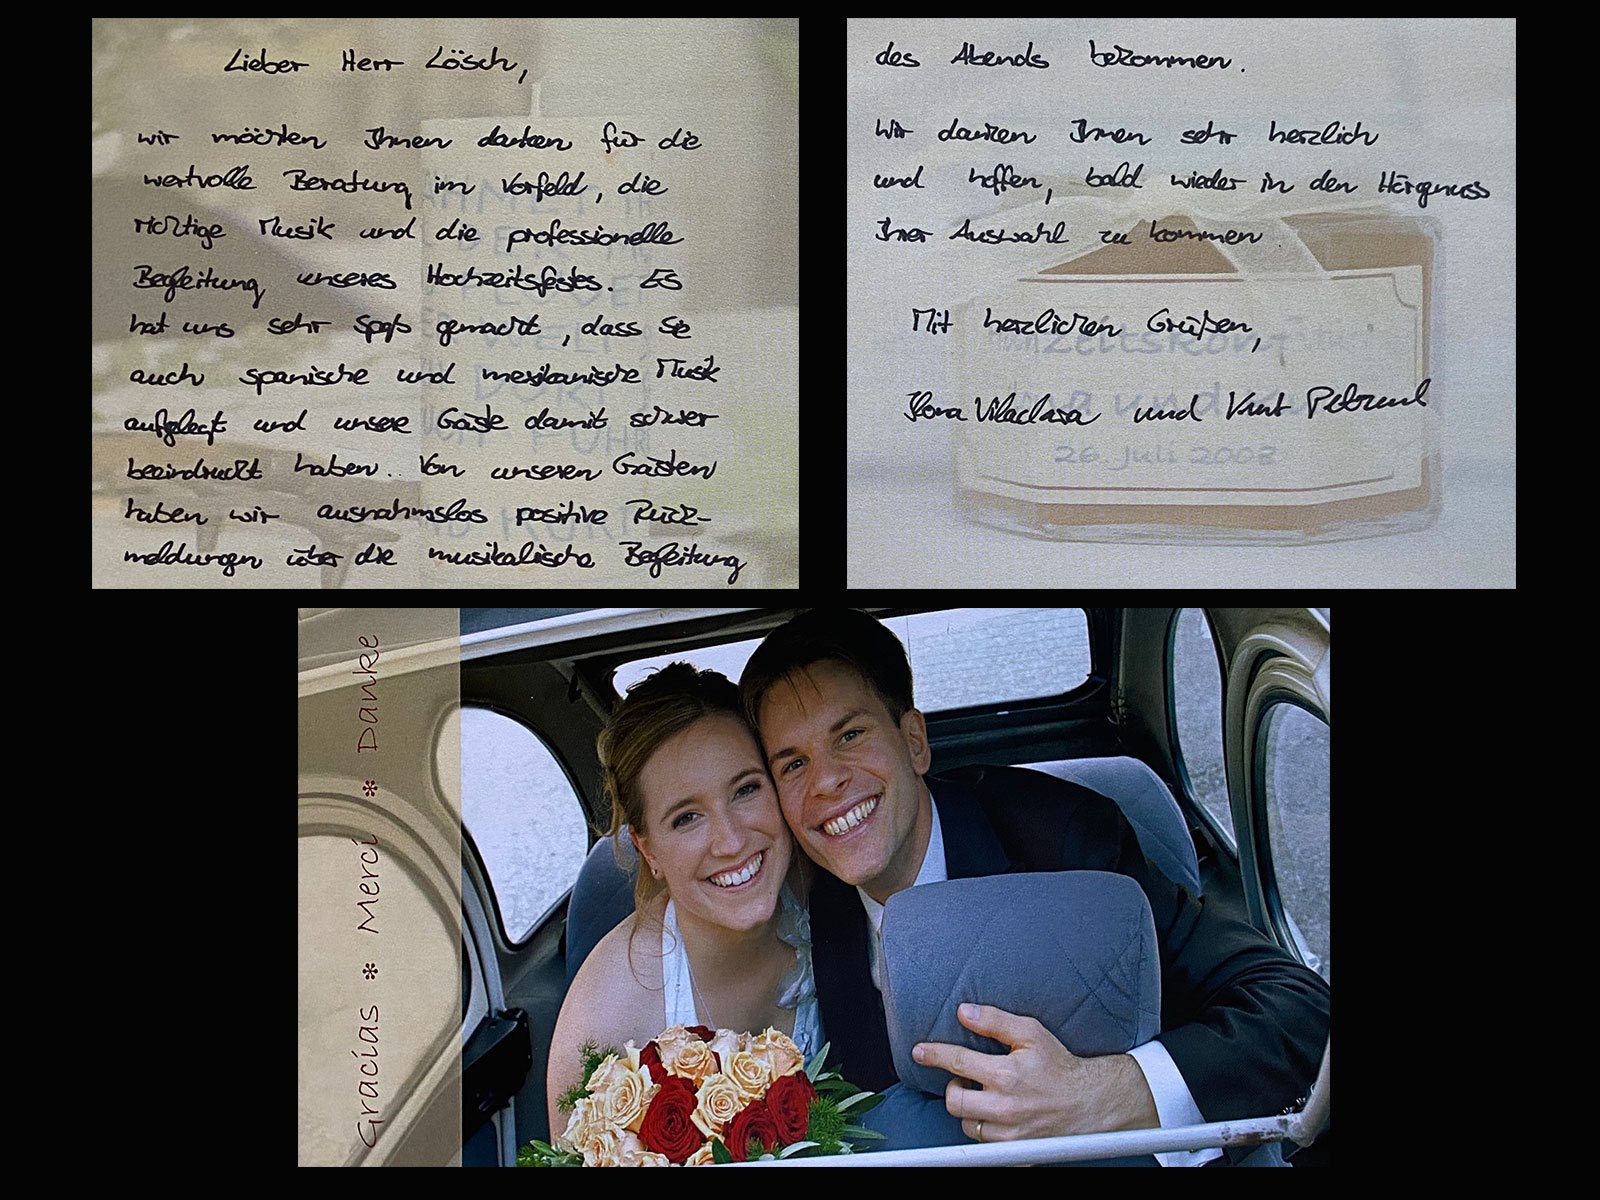 Lieber Herr Lösch,
wir möchten Ihnen danken für die
wertvolle Beratung im Vorfeld, die
richtige Musik und die professionelle
Begleitung unseres Hochzeitsfestes. Es
hat uns sehr Spaß gemacht, dass Sie
auch spanische und mexikanische Musik
aufgelegt und unsere Gäste damit schwer
beeindruckt haben. Von unseren Gästen
haben wir ausnahmslos positive Rück-
meldungen über die musikalische Begleitung
des Abends bekommen.
Wir danken Ihnen sehr herzlich
und hoffen, bald wieder in den Hörgenuss
Ihrer Auswahl zu kommen.
Mit herzlichen Grüßen,
Viladasa und
26. Juli 2008
Gracias * Merci * Danke